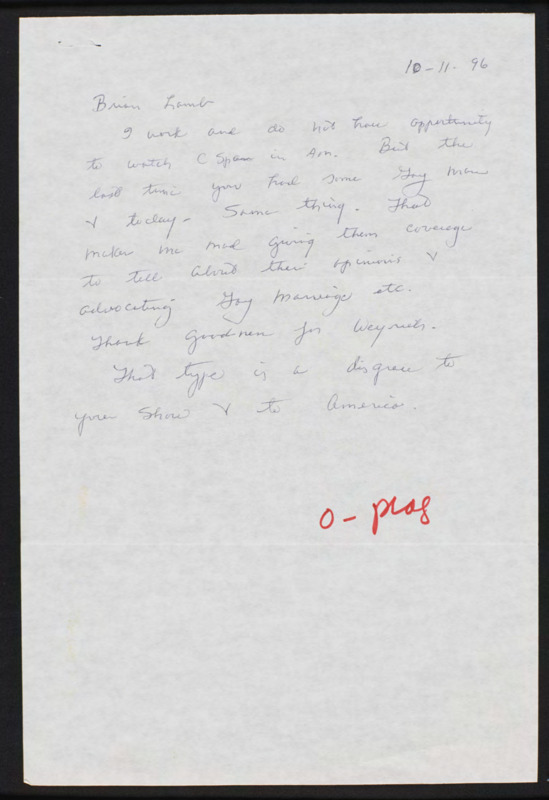 10-11-96
Brian Lamb
I work and do not have opportunity
to watch C Span in Am. But the
last time you had some Gay Man
& today - Same thing. That
makes me mad giving them coverage
to tell about their opinions &
advocating Gay Marriage etc.
Thank goodness for Weyrich.
That type is a disgrace to
your show & to America.
O - prog